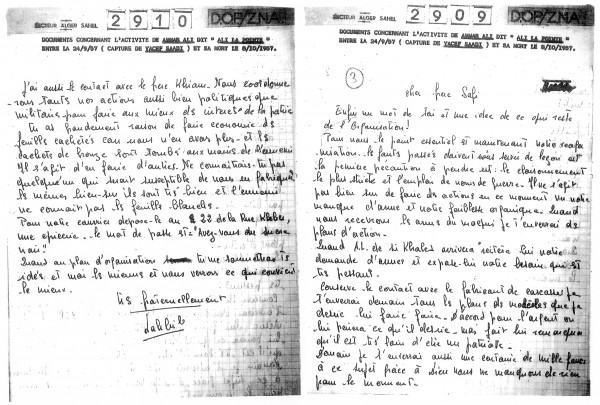 2910
SECTEUR ALGER SAHEL
DOP/ZNA
DOCUMENTS CONCERNANT L'ACTIVITE DE AMMAR ALI DIT " ALI LA POINTE "
ENTRE LA 24/9/57 ( CAPTURE DE YACEF SAADI ) ET SA MORT LE 8/10/1957.
J'ai aussi le contact avec le frère Khiam. Nous coordonne-
rons toutes nos actions aussi bien politiques que
militaires pour faire aux mieux des intérêts de la patrie
tu as grandement raison de faire économie des
feuilles cachetées car nous n'en avons plus - et les
cachets de bronze sont tombés aux mains de l'ennemi
Il s'agit d'en faire d'autres. Ne connaitrais-tu pas
quelqu'un qui serait susceptible de nous en fabriquer
les mêmes bien-sur ils sont très bien et l'ennemi
ne connait pas les feuilles blanches.
Pour notre courrier dépose-le au 22 de la Rue Kléber
une epicerie. le mot de passe est "Avez-vous du
Quand au plan d'organisation tu me soumettras tes
idées et moi les miennes et nous verrons ce qui convient
le mieux.
très fraternellement
2909
SECTEUR ALGER SAHEL
DOP/ZNA
DOCUMENTS CONCERNANT L'ACTIVITE DE AMMAR ALI DIT " ALI LA POINTE "
ENTRE LA 24/9/57 ( CAPTURE DE YACEF SAADI ) ET SA MORT LE 8/10/1957.
3
cher frère Safi
Enfin un mot de toi et une idée de ce qui reste
de l'Organisation!
Pour nous le point essentiel si maintenant notre réorga-
nisation. les fautes passées doivent nous servir de leçon et
la première précaution à prendre est : le cloisonnement
le plus strict et l'emploi de noms de guerre. Il ne s'agit
pas bien sur de faire des actions en ce moment vu notre
manque d'arme et notre faiblesse organique. Quand
nous recevrons les armes du maquis je t'enverrai des
plans d'action.
Quand AL. de Si Khaled arrivera réitère lui notre
demande d'armes et expose-lui notre besoin qui est
très pressant.
Conserve le contact avec le fabricant de carcasses je
t'enverrai demain tous les plans de modèles que je
désire lui faire faire. D'accord pour l'argent on
lui paiera ce qu'il désire mais fait lui remarquer
qu'il est très loin d'être un patriote.
Demain je t'enverrai aussi une centaine de mille francs
à ce sujet grâce à Dieu nous ne manquons de rien
pour le moment.